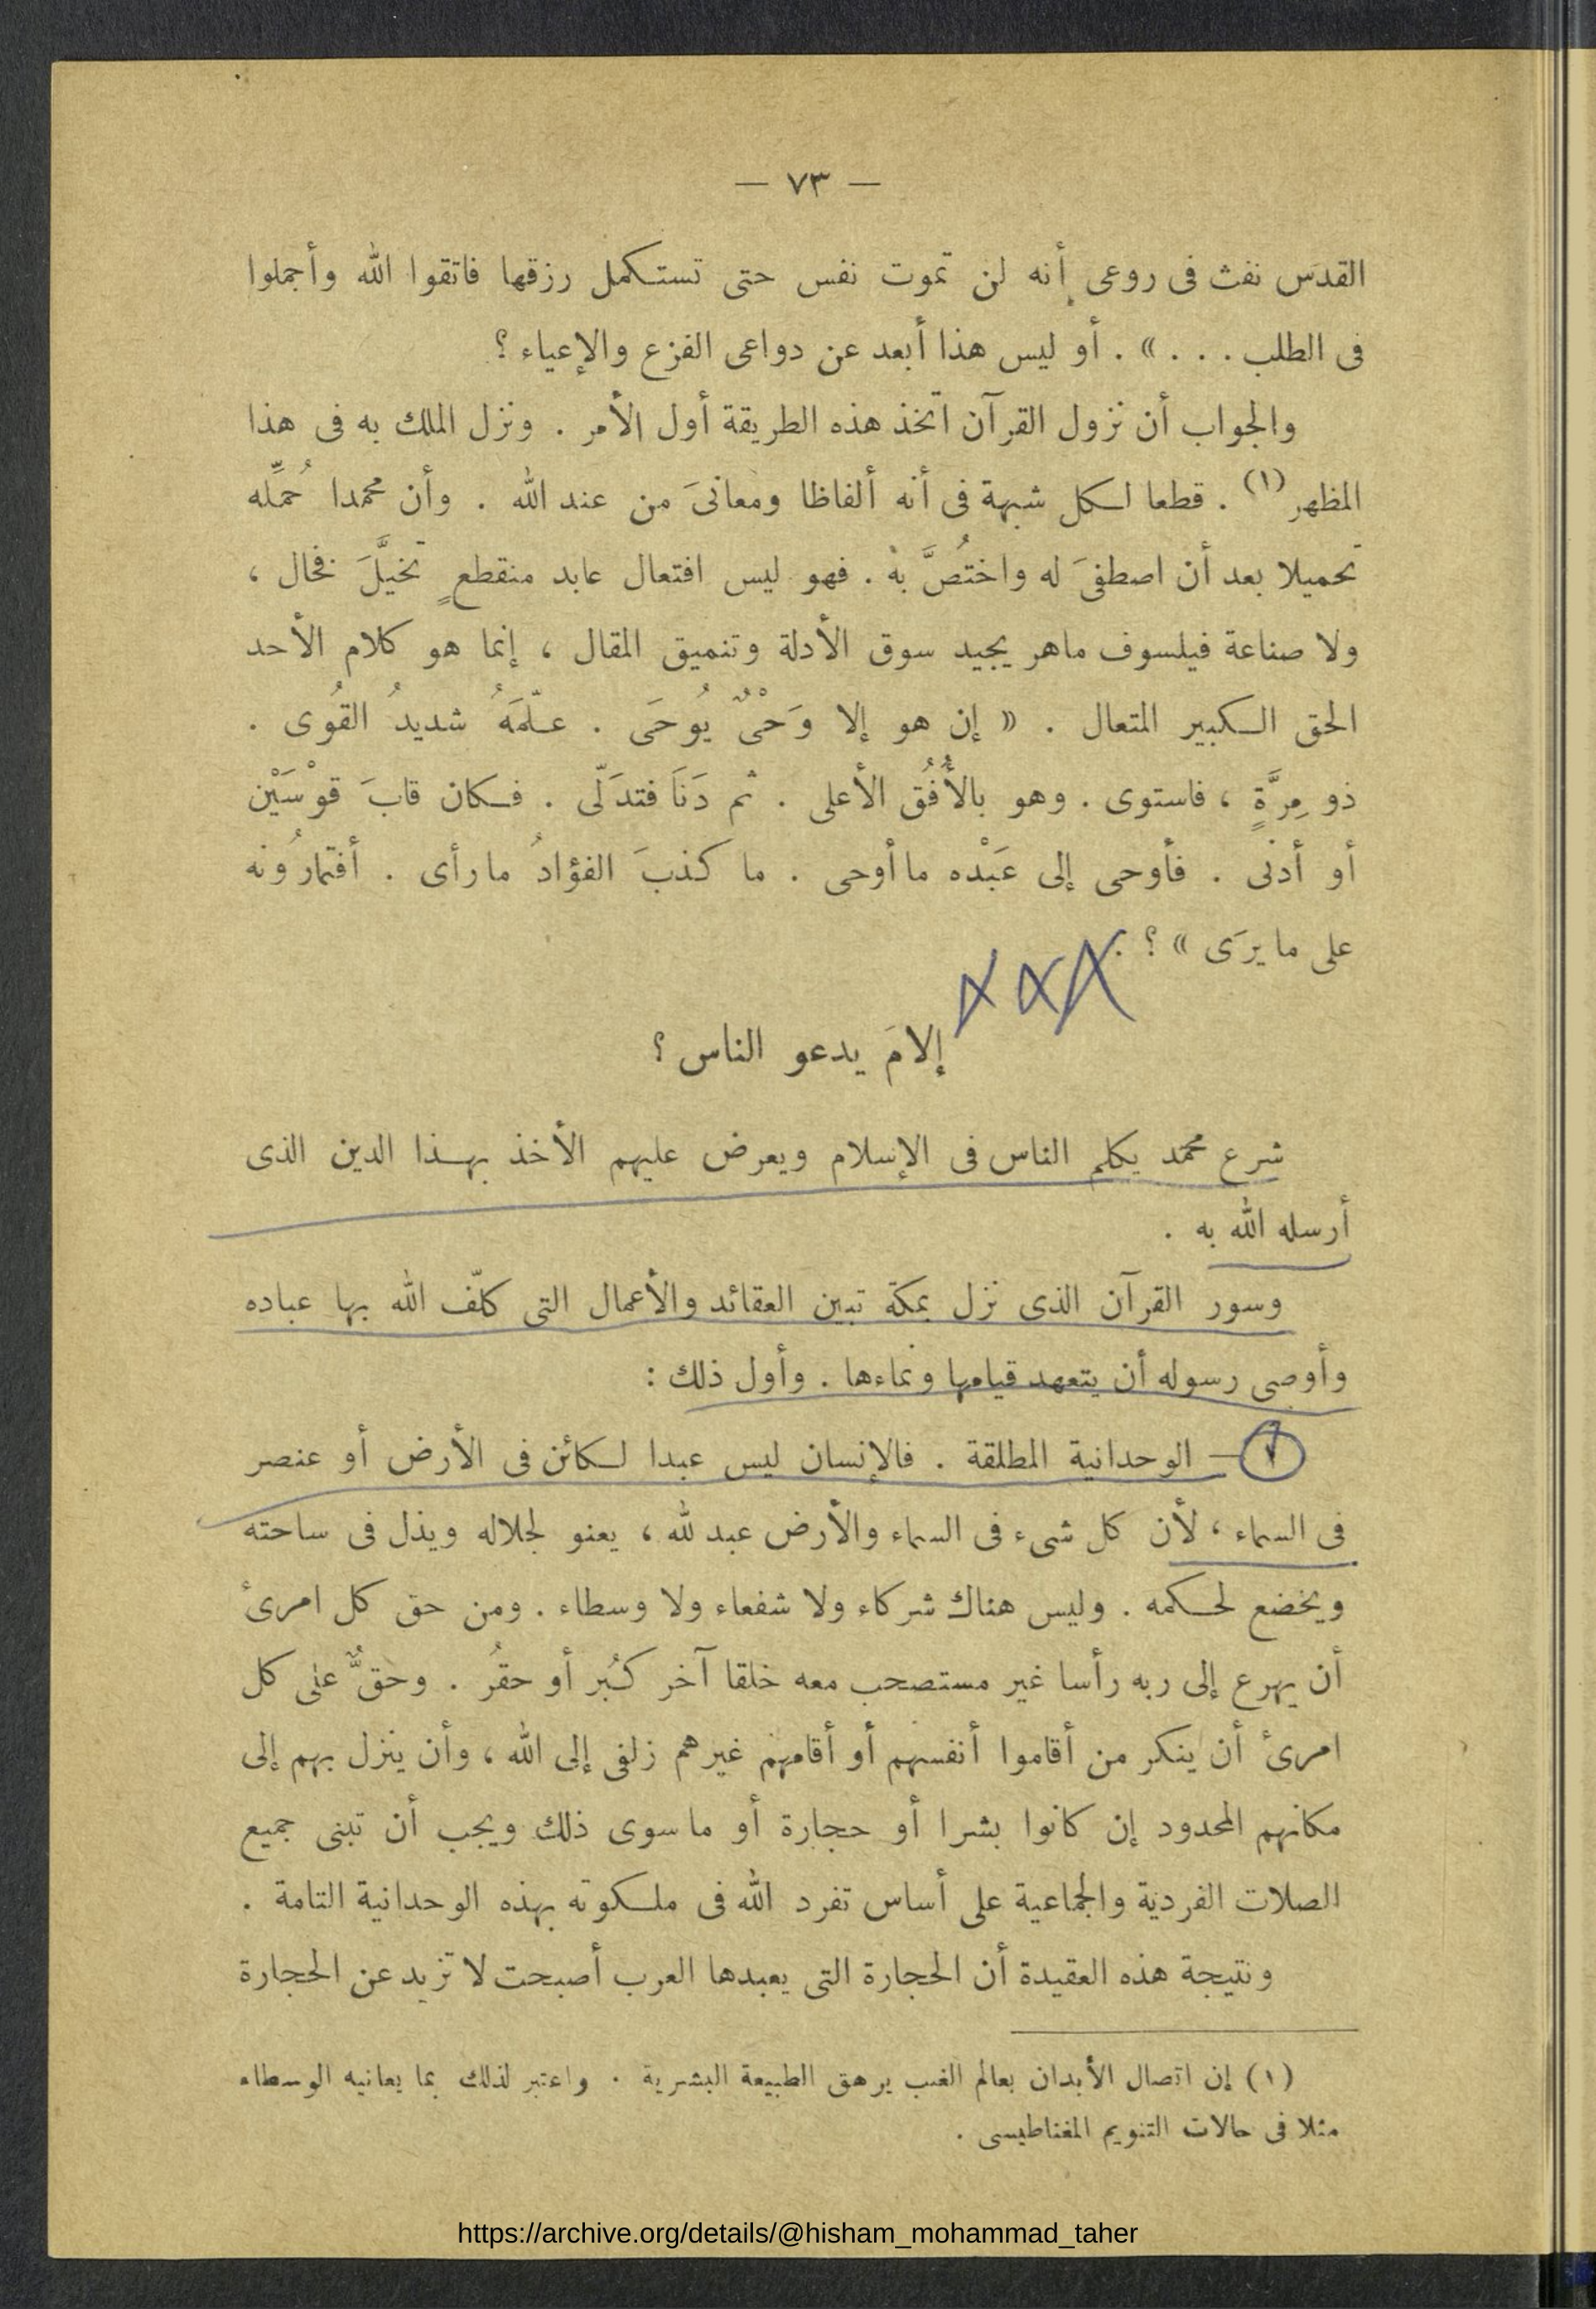 — ٧٣ —
القدَس نفث فى روعى أنه لن تموت نفس حتى تستكمل رزقها فاتقوا الله وأجملوا
فى الطلب . . . » . أو ليس هذا أبعد عن دواعى الفزع والإعياء ؟
والجواب أن نزول القرآن اتخذ هذه الطريقة أول الأمر . ونزل الملك به فى هذا
المظهر (١) . قطعا لكل شبهة فى أنه ألفاظا ومعانىَ من عند الله . وأن محمدا حُمِّله
تحميلا بعد أن اصطفىَ له واختُصَّ به . فهو ليس افتعال عابد منقطعٍ تخيَّلَ فخال ،
ولا صناعة فيلسوف ماهر يجيد سوق الأدلة وتنميق المقال ، إنما هو كلام الأحد
الحق الكبير المتعال . « إن هو إلا وَحْىٌ يُوحَى . علّمَهُ شديدُ القُوى .
ذو مِرَّةٍ ، فاستوى . وهو بالأُفُق الأعلى . ثم دَنَا فتدَلّى . فكان قابَ قوْسَيْن
أو أدنى . فأوحى إلى عَبْده ما أوحى . ما كذبَ الفؤادُ ما رأى . أفتمارُونه
على ما يرَى » ؟ .
إلامَ يدعو الناس ؟
شرع محمد يكلم الناس فى الإسلام ويعرض عليهم الأخذ بهذا الدين الذى
أرسله الله به .
وسور القرآن الذى نزل بمكة تبين العقائد والأعمال التى كلّف الله بها عباده
وأوصى رسوله أن يتعهد قيامها ونماءها . وأول ذلك :
١ — الوحدانية المطلقة . فالإنسان ليس عبدا لكائن فى الأرض أو عنصر
فى السماء ، لأن كل شىء فى السماء والأرض عبد لله ، يعنو لجلاله ويذل فى ساحته
ويخضع لحكمه . وليس هناك شركاء ولا شفعاء ولا وسطاء . ومن حق كل امرئ
أن يهرع إلى ربه رأسا غير مستصحب معه خلقا آخر كبُر أو حقرُ . وحقٌّ على كل
امرئ أن ينكر من أقاموا أنفسهم أو أقامهم غيرهم زلفى إلى الله ، وأن ينزل بهم إلى
مكانهم المحدود إن كانوا بشرا أو حجارة أو ما سوى ذلك ويجب أن تبنى جميع
الصلات الفردية والجماعية على أساس تفرد الله فى ملكوته بهذه الوحدانية التامة .
ونتيجة هذه العقيدة أن الحجارة التى يعبدها العرب أصبحت لا تزيد عن الحجارة
(١) إن اتصال الأبدان بعالم الغيب يرهق الطبيعة البشرية . واعتبر لذلك بما يعانيه الوسطاء
مثلا فى حالات التنويم المغناطيسى .
https://archive.org/details/@hisham_mohammad_taher